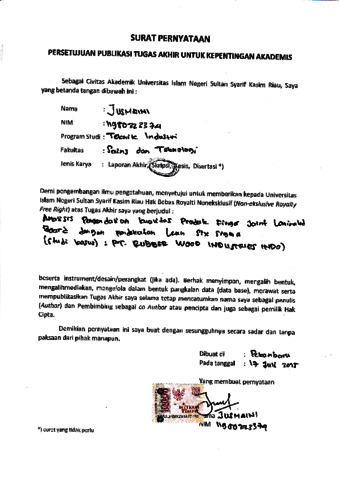 SURAT PERNYATAAN
PERSETUJUAN PUBLIKASI TUGAS AKHIR UNTUK KEPENTINGAN AKADEMIS
Sebagai Civitas Akademik Universitas Islam Negeri Sultan Syarif Kasim Riau, Saya
yang betanda tangan dibawah ini :
Nama : JUSMAINI
NIM : 11980223374
Program Studi : Teknik Industri
Fakultas : Sains dan Teknologi
Jenis Karya : Laporan Akhir, Skripsi, Tesis, Disertasi *)
Demi pengembangan ilmu pengetahuan, menyetujui untuk memberikan kepada Universitas
Islam Negeri Sultan Syarif Kasim Riau Hak Bebas Royalti Noneksklusif (Non-eksklusive Royalty
Free Right) atas Tugas Akhir saya yang berjudul :
Analisis Pengendalian kualitas Produk Finger Joint Laminated
Board dengan pendekatan Lean Six Sigma
(Studi kasus) : PT. RUBBER WOOD INDUSTRIES INDO)
beserta instrument/desain/perangkat (jika ada). Berhak menyimpan, mergalih bentuk,
mengalihmediakan, mengelola dalam bentuk pangkalan data (data base), merawat serta
mempublikasikan Tugas Akhir saya selama tetap mencantumkan nama saya sebagai penulis
(Author) dan Pembimbing sebagai co Author atau pencipta dan juga sebagai pemilik Hak
Cipta.
Demikian pernyataan ini saya buat dengan sesungguhnya secara sadar dan tanpa
paksaan dari pihak manapun.
Dibuat di : Pekanbaru
Pada tanggal : 17 Juli 2025
Yang membuat pernyataan
10000
JUSMAINI
NIM 11980223374
*) coret yang tidak perlu